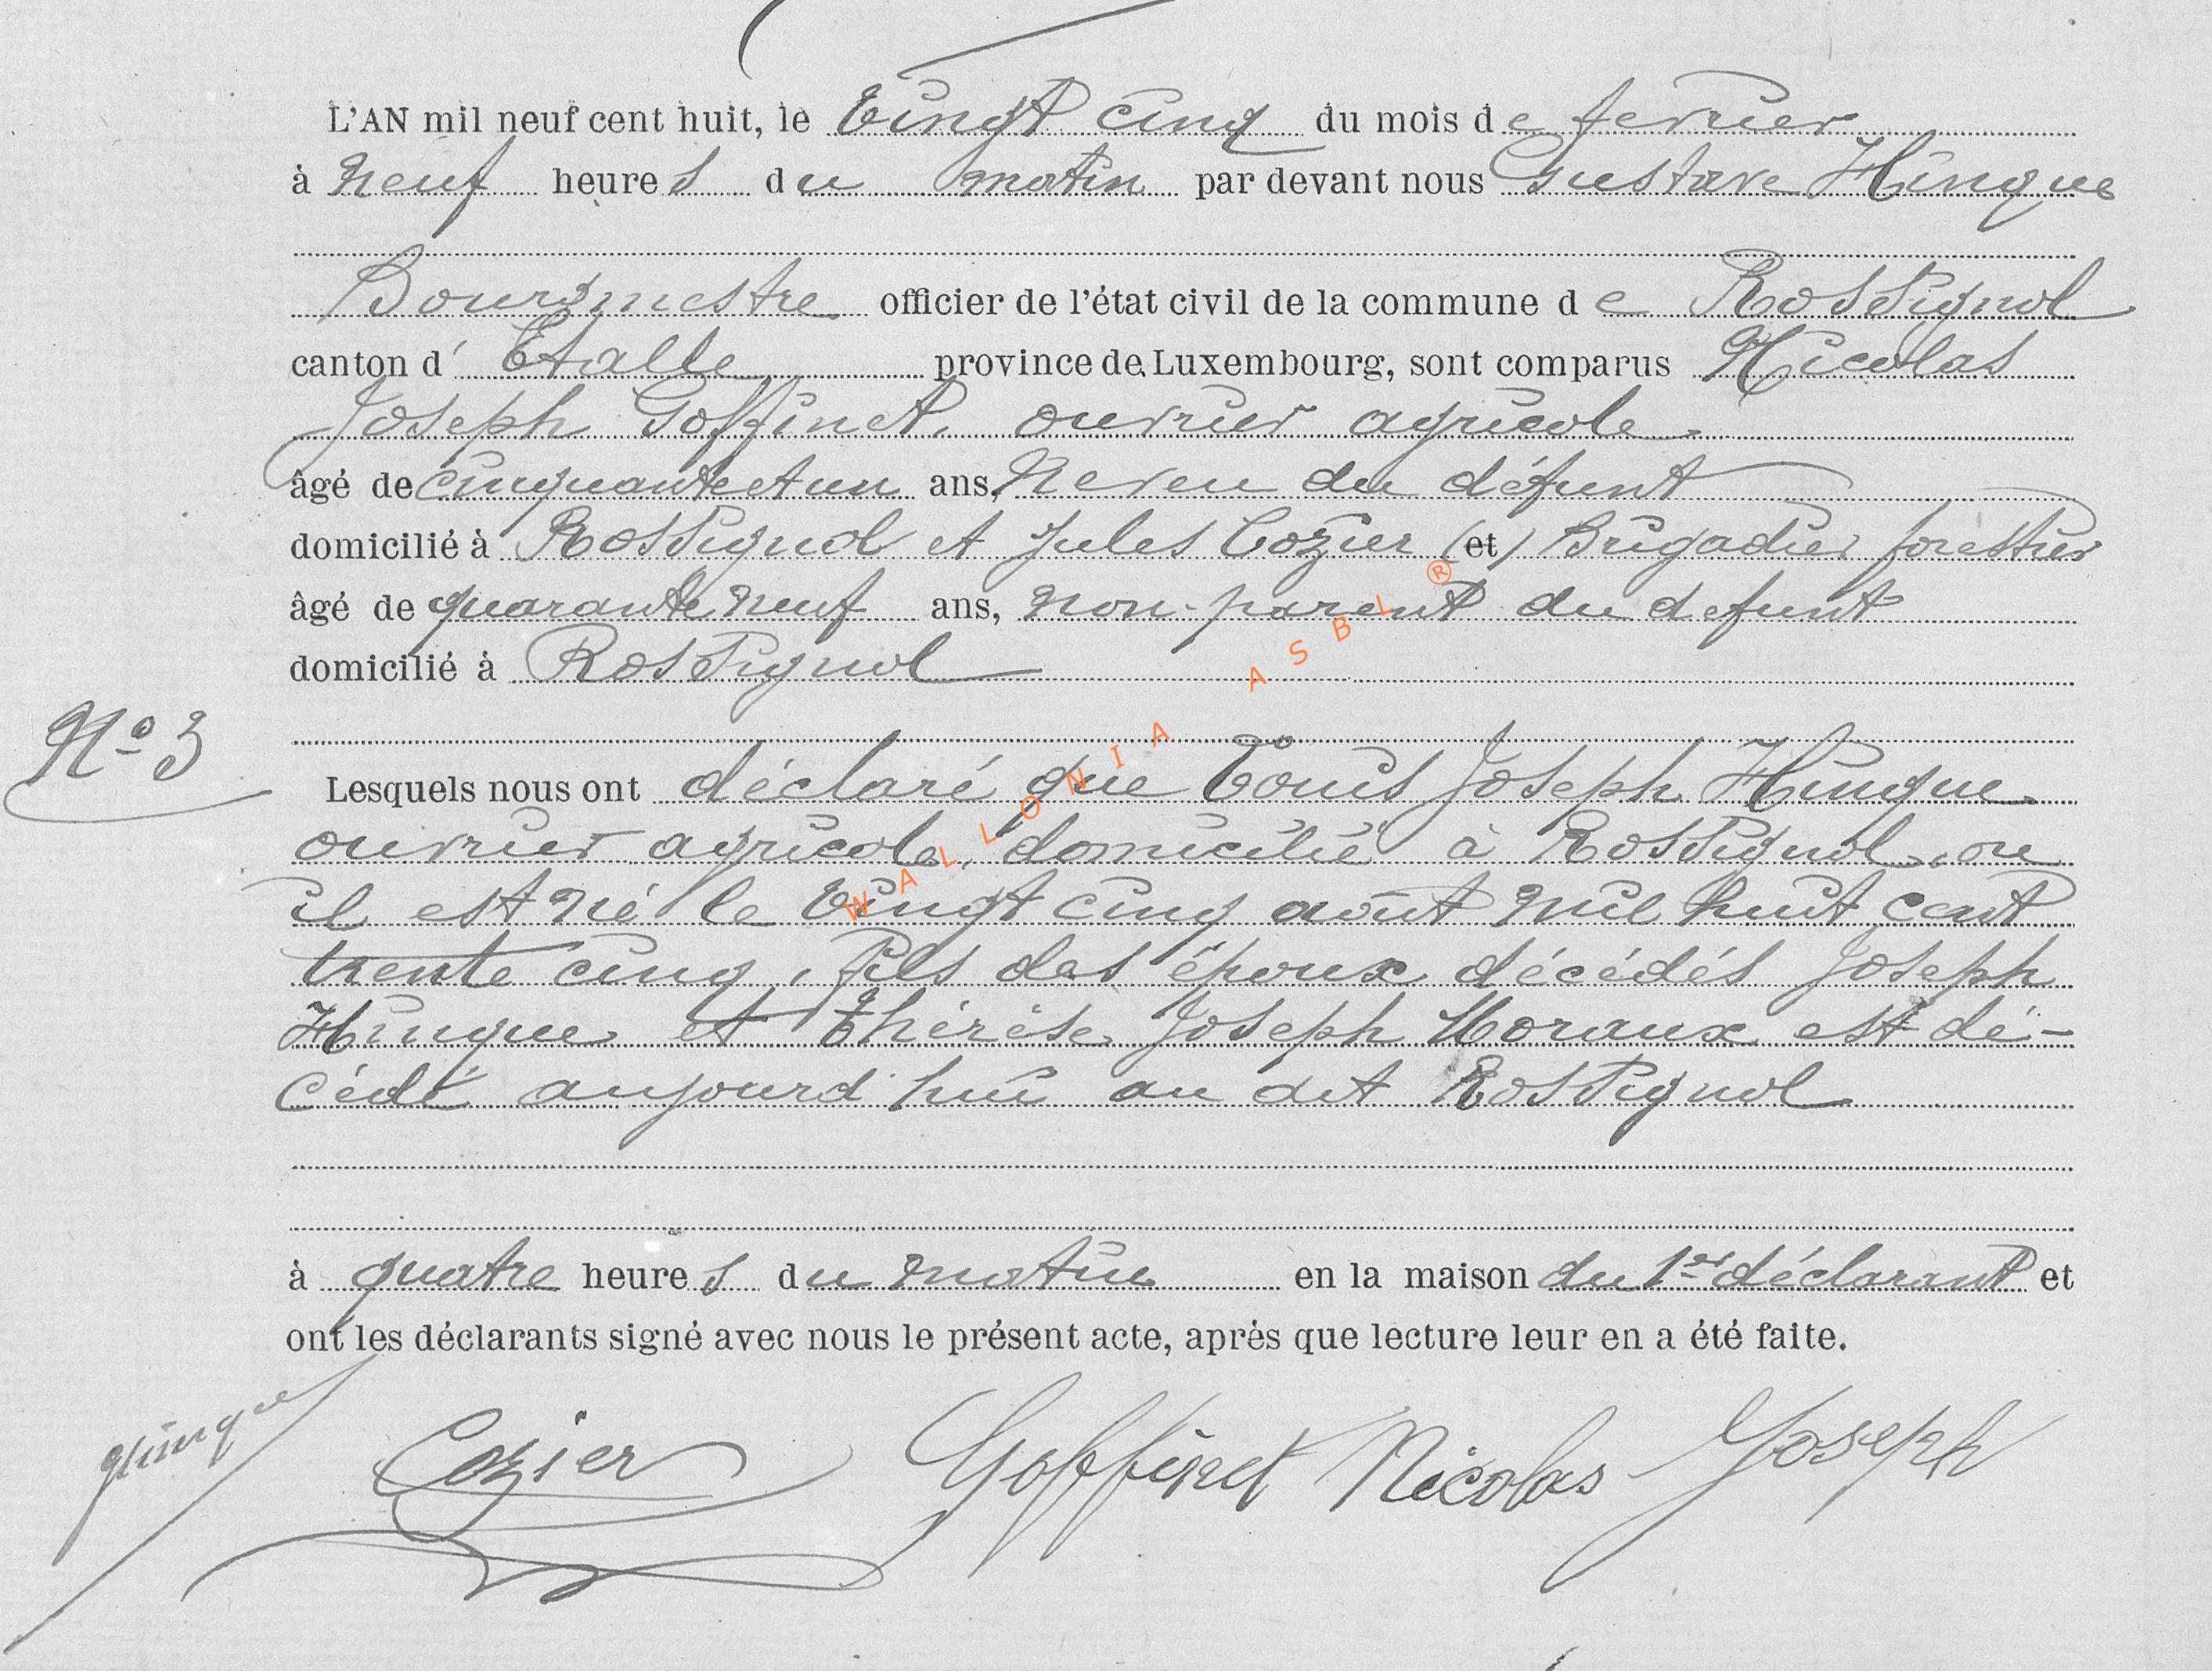 L'AN mil neuf cent huit, le Vingt cinq du mois de fevrier
à Neuf heures du matin par devant nous Gustave Hinque
Bourgmestre officier de l'état civil de la commune de Rossignol
canton d' Etalle province de Luxembourg, sont comparus Nicolas
Joseph Goffinet, ouvrier agricole
âgé de cinquante et un ans, Neveu du défunt
domicilié à Rossignol et Jules Cozier (et) Brigadier forestier
âgé de quarante neuf ans, non-parent du defunt
domicilié à Rossignol
No 3
Lesquels nous ont déclaré que Louis Joseph Hinque
ouvrier agricole, domicilié à Rossignol, ou
il est né le Vingt cinq août mil huit cent
trente cinq, fils des époux décédés Joseph
Hinque et Thérèse Joseph Moraux est dé-
cédé aujourd'hui au dit Rossignol
à quatre heures du matin en la maison du 1er déclarant et
ont les déclarants signé avec nous le présent acte, après que lecture leur en a été faite.
GHinque Cozier Goffinet Nicolas Joseph
WALLONIA ASBL ®